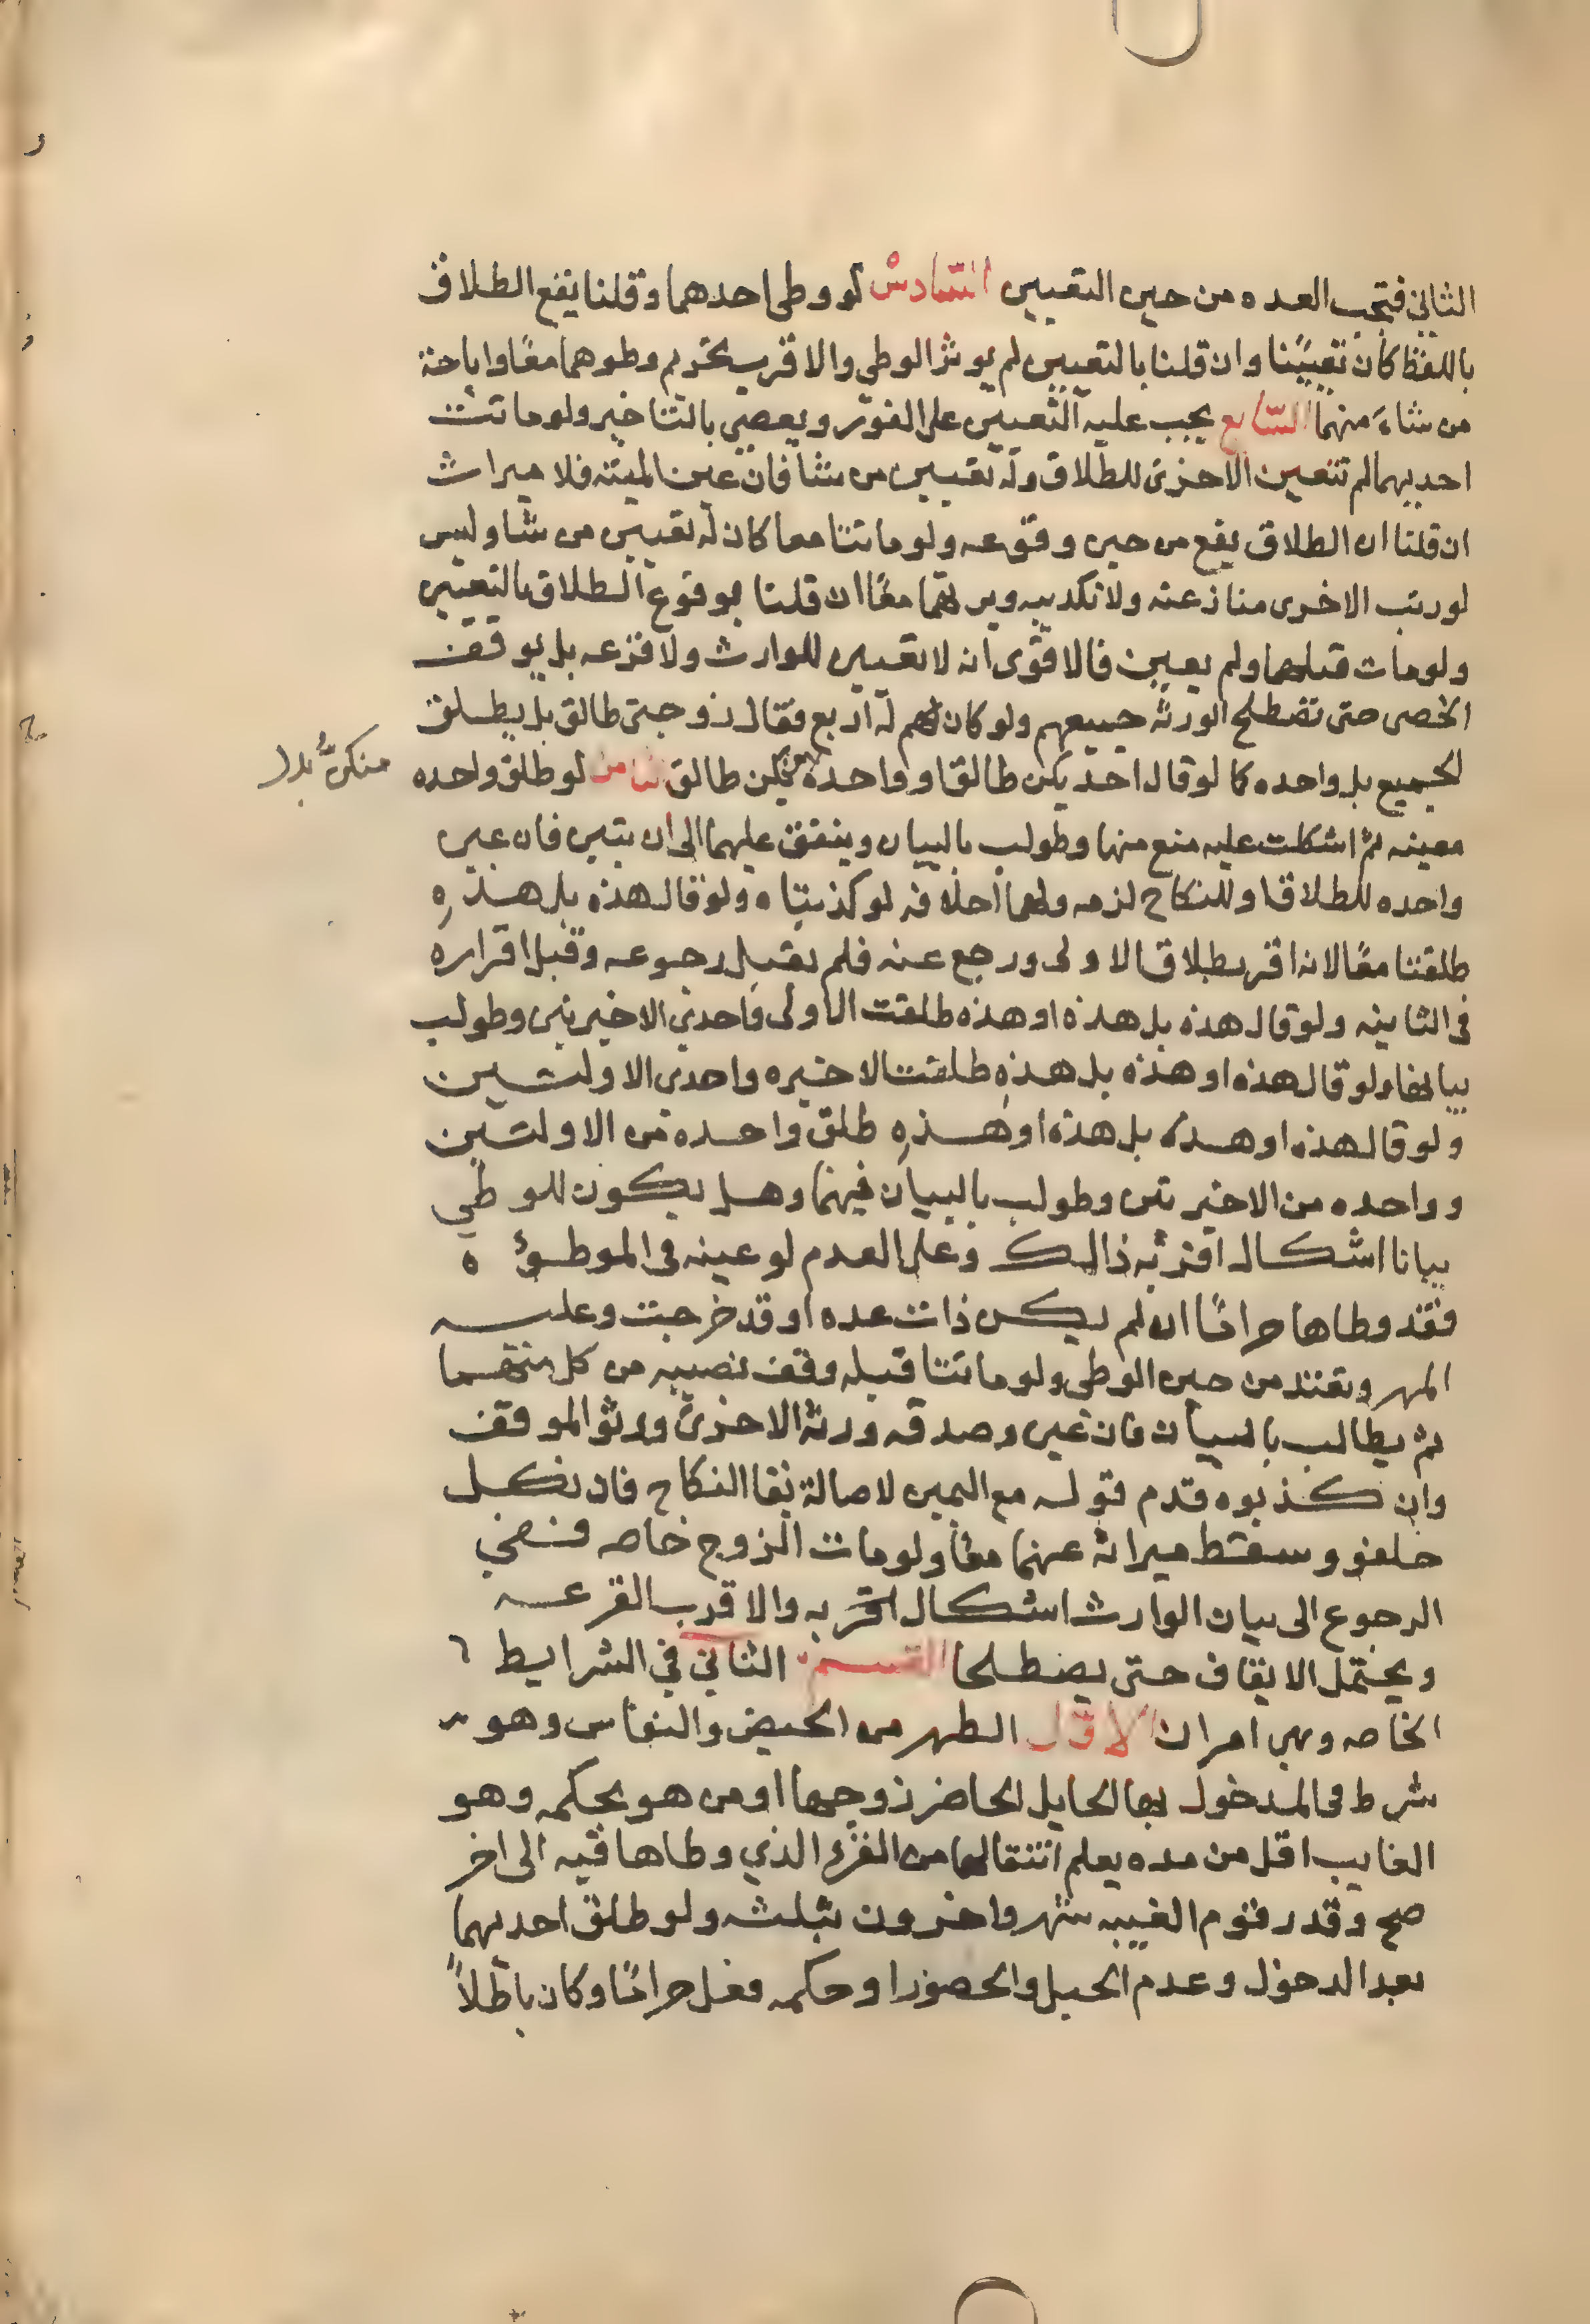 الثاني فتجب العده من حين التعيين السّادس لو وطى احدهما وقلنا يقع الطلاق
باللفظ كان تعيينًا وان قلنا بالتعيين لم يوثر الوطي والاقرب تحريم وطوهما معًا واباحة
من شاء منهما السّابع يجب عليه التعيين على الفور ويعصي بالتاخير ولو ماتت
احديهما لم تتعين الاخرى للطلاق وله تعيين من شا فان عين الميته فلا ميراث
ان قلنا ان الطلاق يقع من حين وقوعه ولو ماتتا معا كان له تعيين من شا وليس
لورثه الاخرى منازعته ولا تكذيبه ويرثهما معًا ان قلنا بوقوع الطلاق بالتعيين
ولو مات قبلهما ولم يعين فالاقوى انه لا تعيين للوارث ولا قرعه بل يوقف
الحصى حتى تصطلح الورثه جميعهم ولو كان له اربع فقال زوجتي طالق بل يطلق
الجميع بل واحده كما لو قال احديكن طالق او واحدة منكن طالق الثامن لو طلق واحده
منكنّ بدل
معينه ثم اشكلت عليه منع منها وطولب بالبيان وينفق عليهما الى ان يتبين فان عين
واحده للطلاق او للنكاح لزمه ولهما احلافه لو كذبتاه ولو قال هذه بل هذه
طلقتا معًا لانه اقر بطلاق الاولى ورجع عنه فلم يقبل رجوعه وقبل اقراره
في الثانيه ولو قال هذه بل هذه او هذه طلقت الاولى واحدى الاخيرتين وطولب
بيانها ولو قال هذه او هذه بل هذه طلقت الاخيره واحدى الاولتين
ولو قال هذه او هذه بل هذه او هذه طلق واحده من الاولتين
وواحده من الاخيرتين وطولب بالبيان فيهما وهل يكون للوطي
بيانا اشكال اقربه ذالك وعلى العدم لو عينه في الموطوءه
فقد وطاها حرامًا ان لم يكن ذات عده او قد خرجت وعليه
المهر وتعتد من حين الوطي ولو ماتتا قبله وقف نصيبه من كل منهما
ثم يطالب بالبيان فان عين وصدقه ورثة الاخرى ورثو الموقف
وان كذبوه قدم قوله مع اليمين لاصالة بقا النكاح فان نكل
حلفو وسقط ميراثه عنهما معًا ولو مات الزوج خاصه ففي
الرجوع الى بيان الوارث اشكال اقربه والاقرب القرعه
ويحتمل الايقاف حتى يصطلحا القسم الثاني في الشرايط
الخاصه وهي امران الاوّل الطهر من الحيض والنفاس وهو
شرط في المدخول بها الحايل الحاضر زوجها او من هو بحكمه وهو
الغايب اقل من مده يعلم انتقالها من القرء الذي وطاها فيه الى اخر
صح وقدر قوم الغيبه شهر واخرون بثلثه ولو طلق احديهما
بعد الدخول وعدم الحبل والحضور او حكمه فعل حرامًا وكان باطلاً